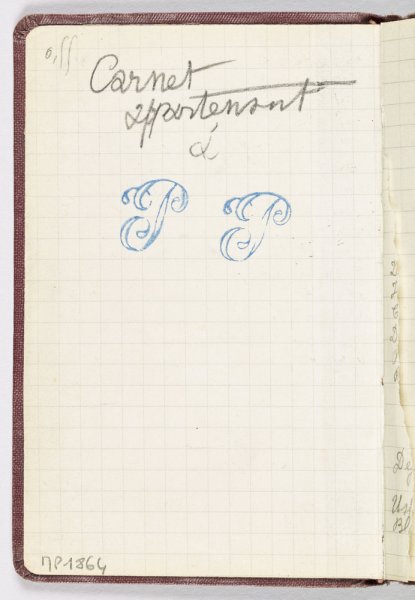 Carnet
appartenant
à
P P
MP1864
De